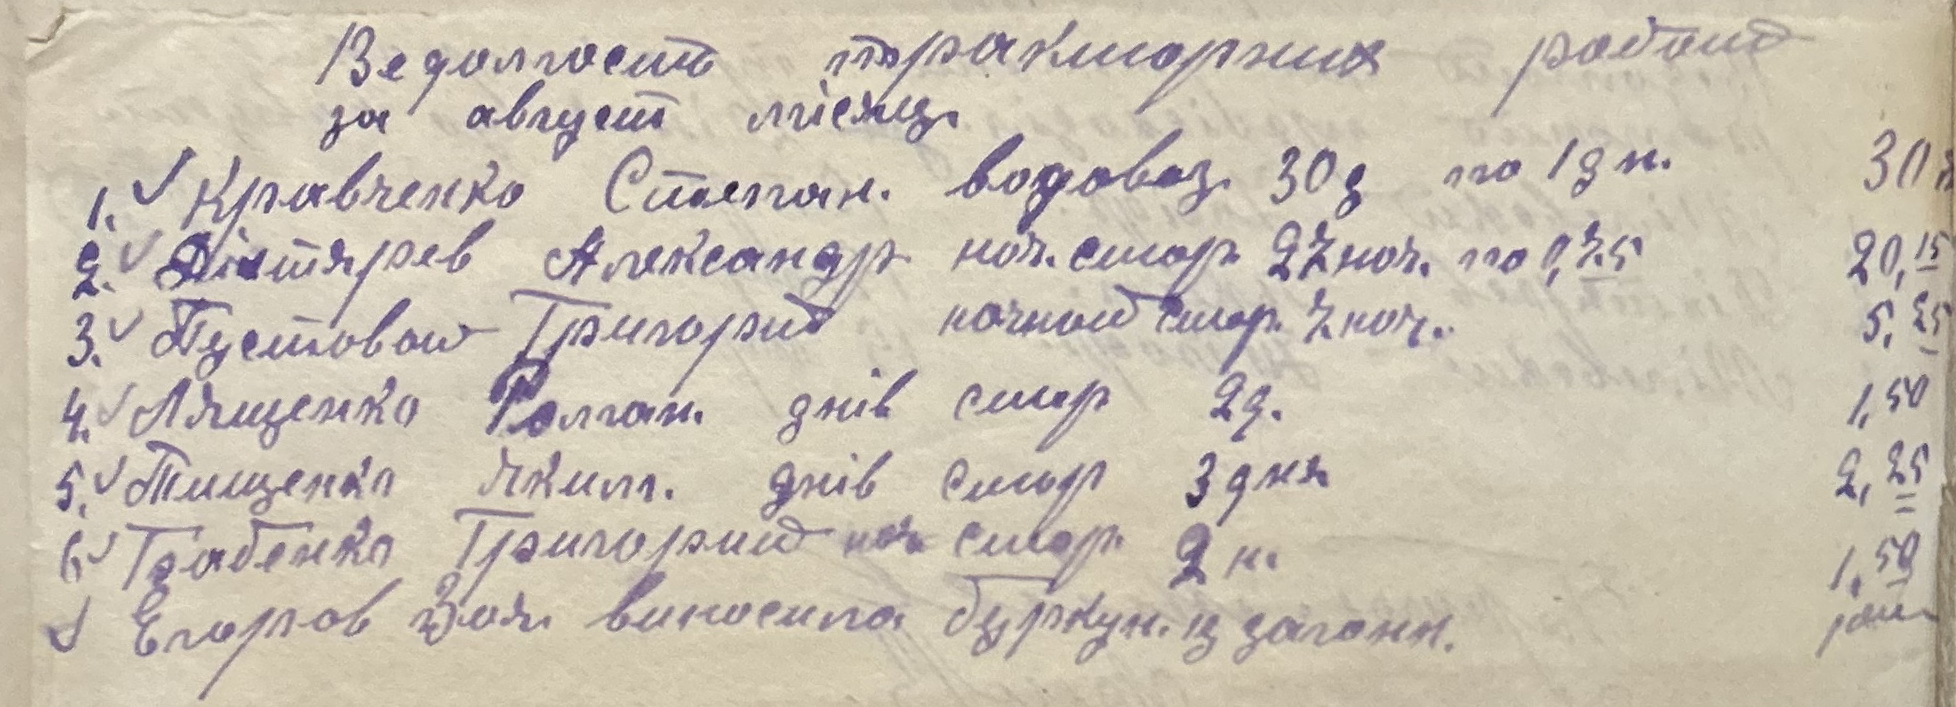 Ведомость тракторних работ
за август місяц.
1. ✓ Кравченко Степан. водовоз. 30 д по 1 д н. 30
2. ✓ Дігтярев Александр ноч. стор. 27 ноч. по 0,75 20,15
3. ✓ Пустовой Григорий ночной стор. 7 ноч. 5,25
4. ✓ Лященко Роман. днів стор 2 д. 1,50
5. ✓ Тищенко Яким. днів стор 3 дня 2,25
6 ✓ Грабенко Григорий ноч стор. 2 н. 1,50
✓ Егоров Зоя. виносила буркун. із загонн.